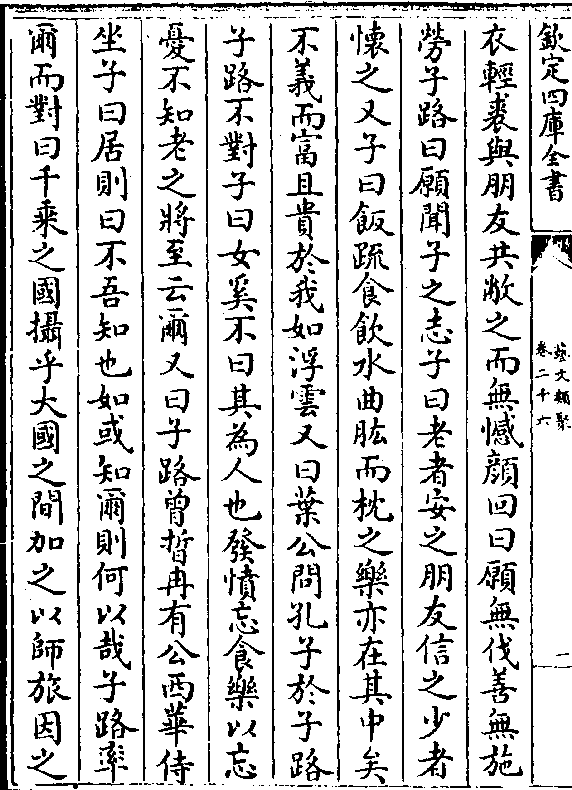 欽定四庫全書
藝文類聚
卷二十六
二
衣輕裘與朋友共敝之而無憾顔回曰願無伐善無施
勞子路曰願聞子之志子曰老者安之朋友信之少者
懷之又子曰飯疏食飲水曲肱而枕之樂亦在其中矣
不義而富且貴於我如浮雲又曰葉公問孔子於子路
子路不對子曰女奚不曰其為人也發憤忘食樂以忘
憂不知老之將至云爾又曰子路曾晳冉有公西華侍
坐子曰居則曰不吾知也如或知爾則何以哉子路率
爾而對曰千乘之國攝乎大國之間加之以師旅因之